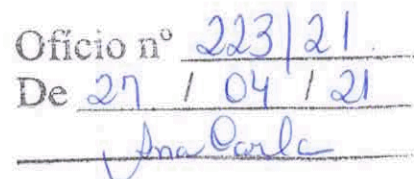 Ofício nº 223/21.
De 27 / 04 / 21
Ana Carla